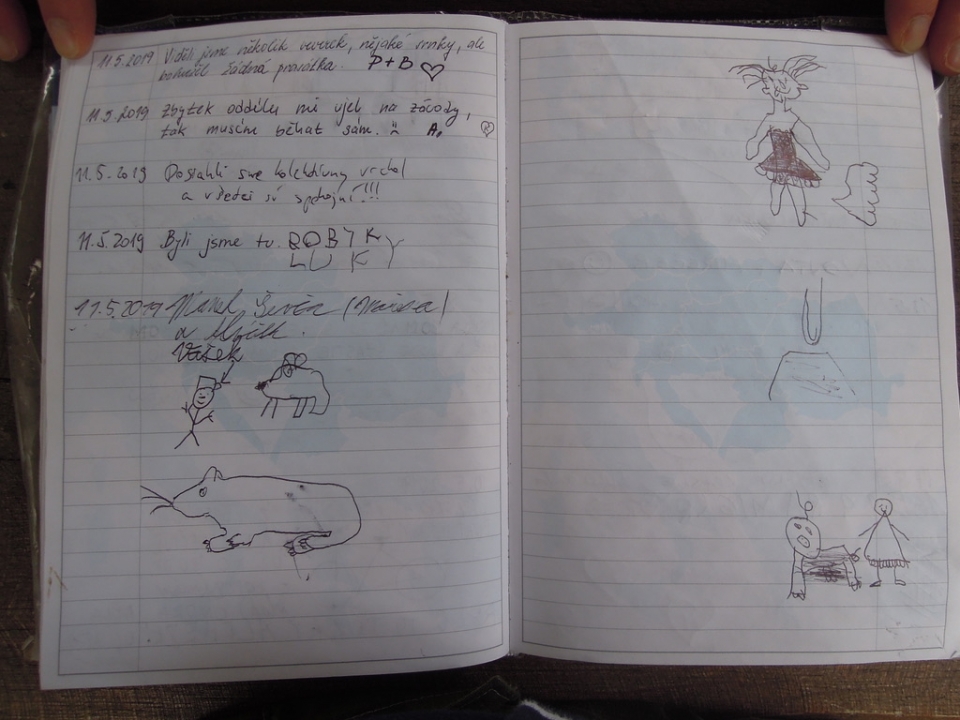 11.5.2019 Viděli jsme několik veverek, nějaké srnky, ale
bohužel žádná prasátka. P+B
11.5.2019 Zbytek oddílu mi ujel na závody,
tak musím běhat sám. A.
11.5.2019 Dosiahli sme kolektívny vrchol
a všetci sú spokojní!!!
11.5.2019 Byli jsme tu. BOBIK
LUKY
11.5.2019
a
Vašek